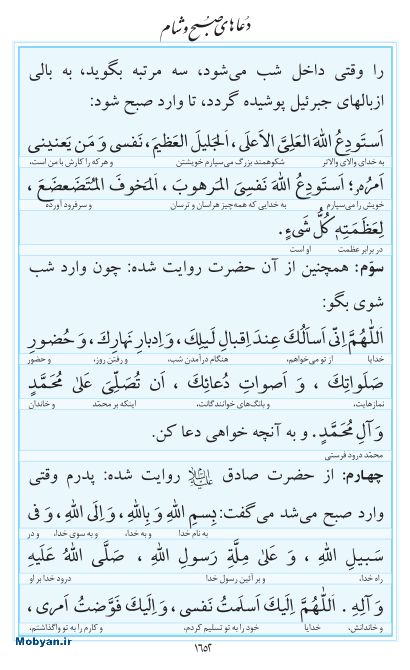 دُعاهای صُبح و شام
را وقتی داخل شب می‌شود، سه مرتبه بگوید، به بالی
ازبالهای جبرئیل پوشیده گردد، تا وارد صبح شود:
اَستَودِعُ اللهَ العَلِیَّ الاَعلَی، اَلجَلیلَ العَظیمَ، نَفسی وَ مَن یَعنینی
به خدای والای والاتر شکوهمند بزرگ می‌سپارم خویشتن و هرکه را کارش با من است،
اَمرُهُ؛ اَستَودِعُ اللهَ نَفسِیَ المَرهوبَ، اَلمَخوفَ المُتَضَعضَعَ،
خویش را می‌سپارم به خدایی که همه‌چیز هراسان و ترسان و سرفرود آورده
لِعَظَمَتِهِ کُلُّ شَیءٍ.
در برابر عظمت او است
سوّم: همچنین از آن حضرت روایت شده: چون وارد شب
شوی بگو:
اَللّٰهُمَّ اِنّی اَسأَلُکَ عِندَ اِقبالِ لَیلِکَ، وَ اِدبارِ نَهارِکَ، وَ حُضورِ
خدایا از تو می‌خواهم، هنگام درآمدن شب، و رفتن روز، و حضور
صَلَواتِکَ، وَ اَصواتِ دُعائِکَ، اَن تُصَلِّیَ عَلیٰ مُحَمَّدٍ
نمازهایت، و بانگ‌های خوانندگانت، اینکه بر محمّد و خاندان
وَ آلِ مُحَمَّدٍ. و به آنچه خواهی دعا کن.
محمّد درود فرستی
چهارم: از حضرت صادق علیه‌السلام روایت شده: پدرم وقتی
وارد صبح می‌شد می‌گفت: بِسمِ اللهِ وَ بِاللهِ، وَ اِلَی اللهِ، وَ فی
به نام خدا و به خدا، و به سوی خدا، و در
سَبیلِ اللهِ، وَ عَلیٰ مِلَّةِ رَسولِ اللهِ، صَلَّی اللهُ عَلَیهِ
راه خدا، و بر آئین رسول خدا درود خدا بر او
وَ آلِهِ. اَللّٰهُمَّ اِلَیکَ اَسلَمتُ نَفسی، وَ اِلَیکَ فَوَّضتُ اَمری،
و خاندانش، خدایا خود را به تو تسلیم کردم، و کارم را به تو واگذاشتم،
۱۶۵۲
Mobyan.ir